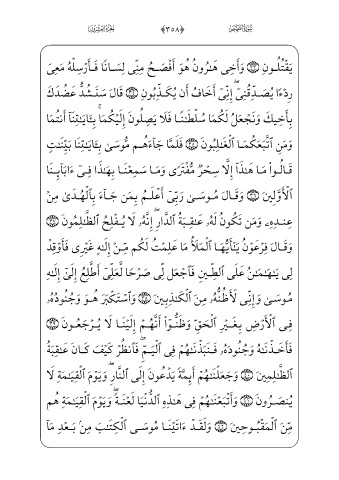 سُورَةُ القَصَصِ ﴿٣٥٨﴾ الجُزْءُ العِشْرُونَ
يَقْتُلُونِ ۝ وَأَخِى هَـٰرُونُ هُوَ أَفْصَحُ مِنِّى لِسَانًا فَأَرْسِلْهُ مَعِىَ
رِدْءًا يُصَدِّقُنِىٓ ۖ إِنِّىٓ أَخَافُ أَن يُكَذِّبُونِ ۝ قَالَ سَنَشُدُّ عَضُدَكَ
بِأَخِيكَ وَنَجْعَلُ لَكُمَا سُلْطَـٰنًا فَلَا يَصِلُونَ إِلَيْكُمَا ۚ بِـَٔايَـٰتِنَآ أَنتُمَا
وَمَنِ ٱتَّبَعَكُمَا ٱلْغَـٰلِبُونَ ۝ فَلَمَّا جَآءَهُم مُّوسَىٰ بِـَٔايَـٰتِنَا بَيِّنَـٰتٍ
قَالُوا۟ مَا هَـٰذَآ إِلَّا سِحْرٌ مُّفْتَرًى وَمَا سَمِعْنَا بِهَـٰذَا فِىٓ ءَابَآئِنَا
ٱلْأَوَّلِينَ ۝ وَقَالَ مُوسَىٰ رَبِّىٓ أَعْلَمُ بِمَن جَآءَ بِٱلْهُدَىٰ مِنْ
عِندِهِۦ وَمَن تَكُونُ لَهُۥ عَـٰقِبَةُ ٱلدَّارِ ۖ إِنَّهُۥ لَا يُفْلِحُ ٱلظَّـٰلِمُونَ ۝
وَقَالَ فِرْعَوْنُ يَـٰٓأَيُّهَا ٱلْمَلَأُ مَا عَلِمْتُ لَكُم مِّنْ إِلَـٰهٍ غَيْرِى فَأَوْقِدْ
لِى يَـٰهَـٰمَـٰنُ عَلَى ٱلطِّينِ فَٱجْعَل لِّى صَرْحًا لَّعَلِّىٓ أَطَّلِعُ إِلَىٰٓ إِلَـٰهِ
مُوسَىٰ وَإِنِّى لَأَظُنُّهُۥ مِنَ ٱلْكَـٰذِبِينَ ۝ وَٱسْتَكْبَرَ هُوَ وَجُنُودُهُۥ
فِى ٱلْأَرْضِ بِغَيْرِ ٱلْحَقِّ وَظَنُّوٓا۟ أَنَّهُمْ إِلَيْنَا لَا يُرْجَعُونَ ۝
فَأَخَذْنَـٰهُ وَجُنُودَهُۥ فَنَبَذْنَـٰهُمْ فِى ٱلْيَمِّ ۖ فَٱنظُرْ كَيْفَ كَانَ عَـٰقِبَةُ
ٱلظَّـٰلِمِينَ ۝ وَجَعَلْنَـٰهُمْ أَئِمَّةً يَدْعُونَ إِلَى ٱلنَّارِ ۖ وَيَوْمَ ٱلْقِيَـٰمَةِ لَا
يُنصَرُونَ ۝ وَأَتْبَعْنَـٰهُمْ فِى هَـٰذِهِ ٱلدُّنْيَا لَعْنَةً ۖ وَيَوْمَ ٱلْقِيَـٰمَةِ هُم
مِّنَ ٱلْمَقْبُوحِينَ ۝ وَلَقَدْ ءَاتَيْنَا مُوسَى ٱلْكِتَـٰبَ مِنۢ بَعْدِ مَآ